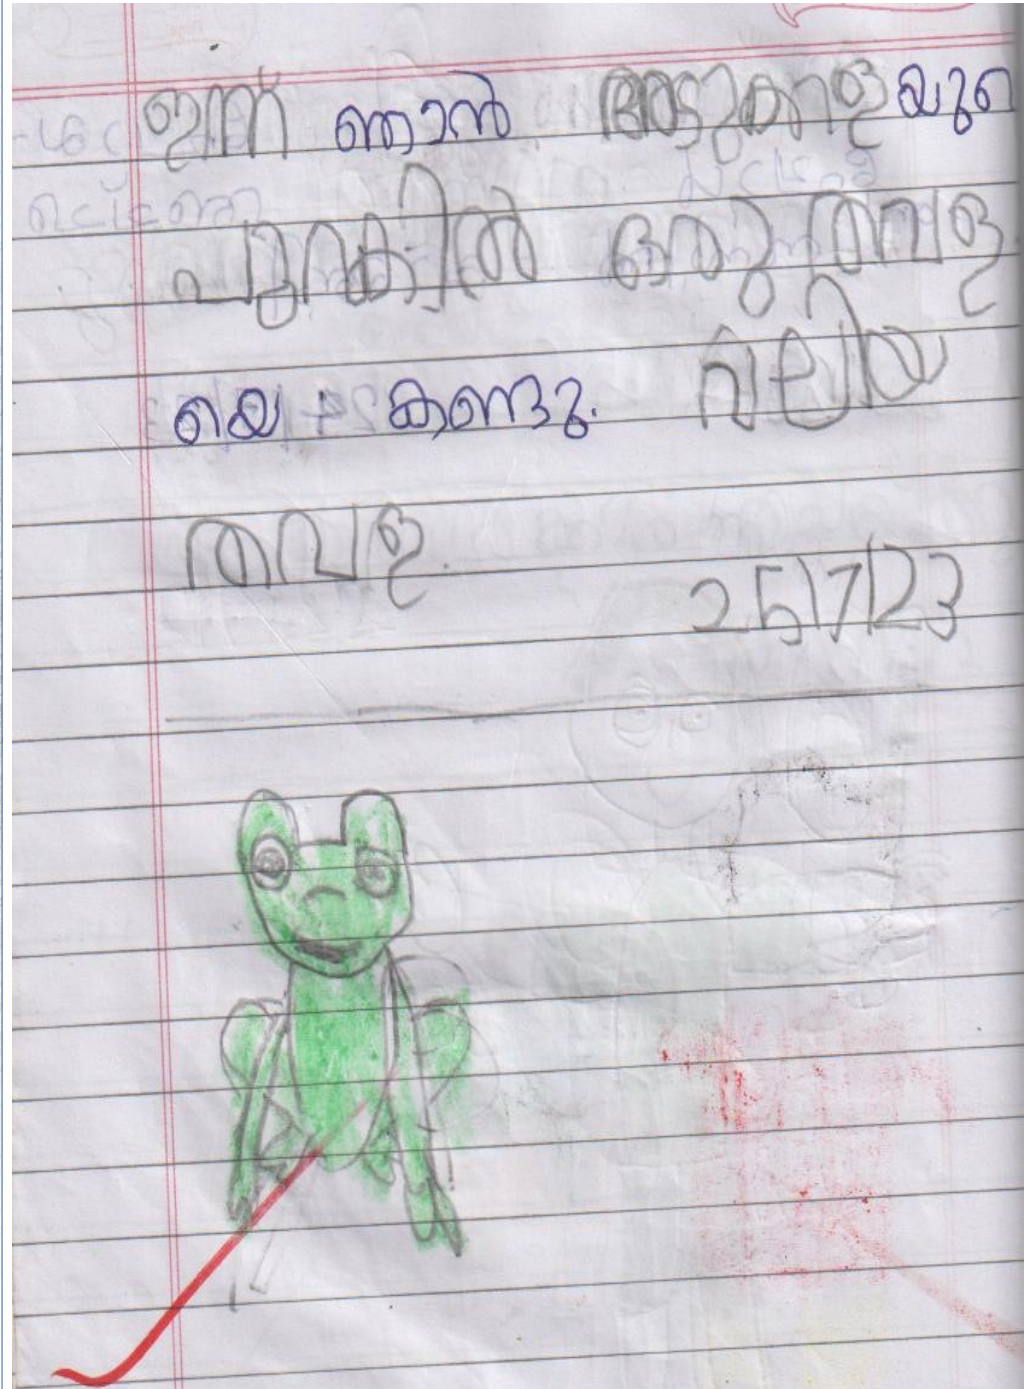 ഇന്ന് ഞാൻ അടുക്കളയുടെ
പുറകിൽ ഒരു തവള
യെ കണ്ടു. വലിയ
തവള.
25/7/23